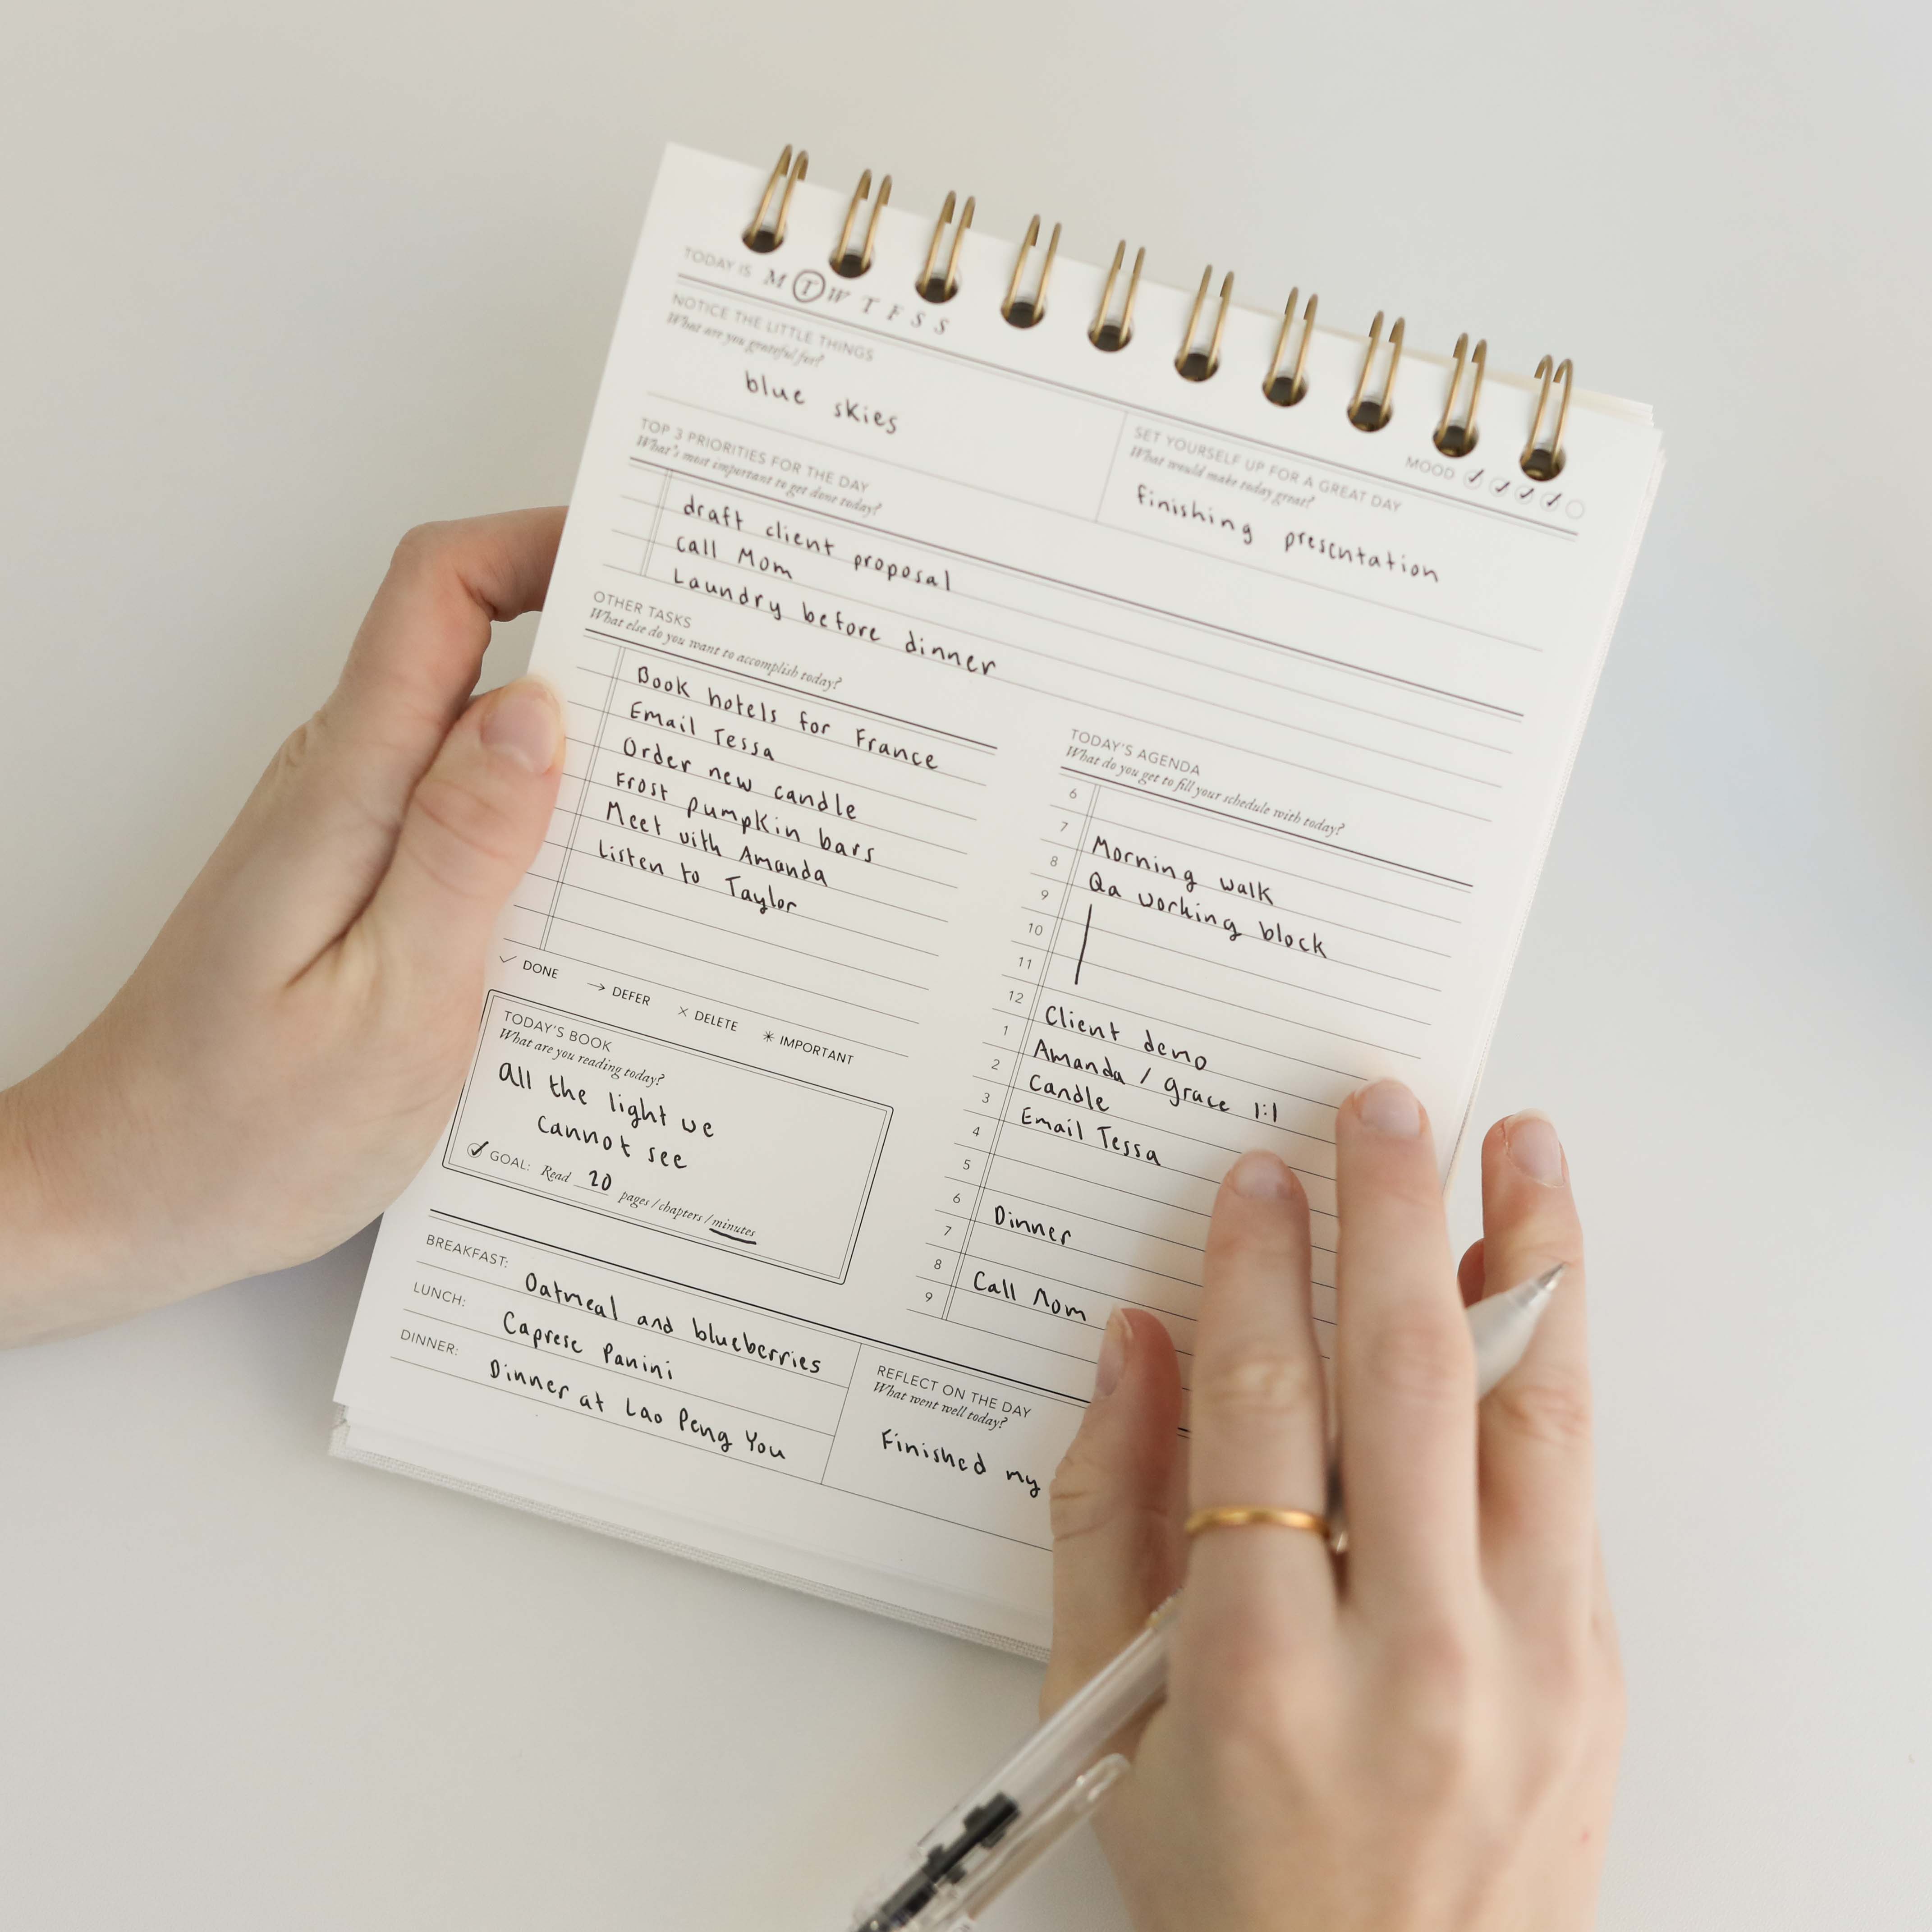 TODAY IS M T W T F S S
MOOD
NOTICE THE LITTLE THINGS
What are you grateful for?
blue skies
SET YOURSELF UP FOR A GREAT DAY
What would make today great?
finishing presentation
TOP 3 PRIORITIES FOR THE DAY
What's most important to get done today?
draft client proposal
call Mom
Laundry before dinner
OTHER TASKS
What else do you want to accomplish today?
Book hotels for France
Email Tessa
Order new candle
Frost pumpkin bars
Meet with Amanda
Listen to Taylor
✓ DONE → DEFER × DELETE ✳ IMPORTANT
TODAY'S AGENDA
What do you get to fill your schedule with today?
6
7 Morning walk
8 Qa working block
9
10
11
12 Client demo
1 Amanda / Grace 1:1
2 Candle
3 Email Tessa
4
5
6 Dinner
7
8 Call Mom
9
TODAY'S BOOK
What are you reading today?
All the light we
cannot see
✓ GOAL: Read 20 pages / chapters / minutes
BREAKFAST: Oatmeal and blueberries
LUNCH: Caprese Panini
DINNER: Dinner at Lao Peng You
REFLECT ON THE DAY
What went well today?
Finished my